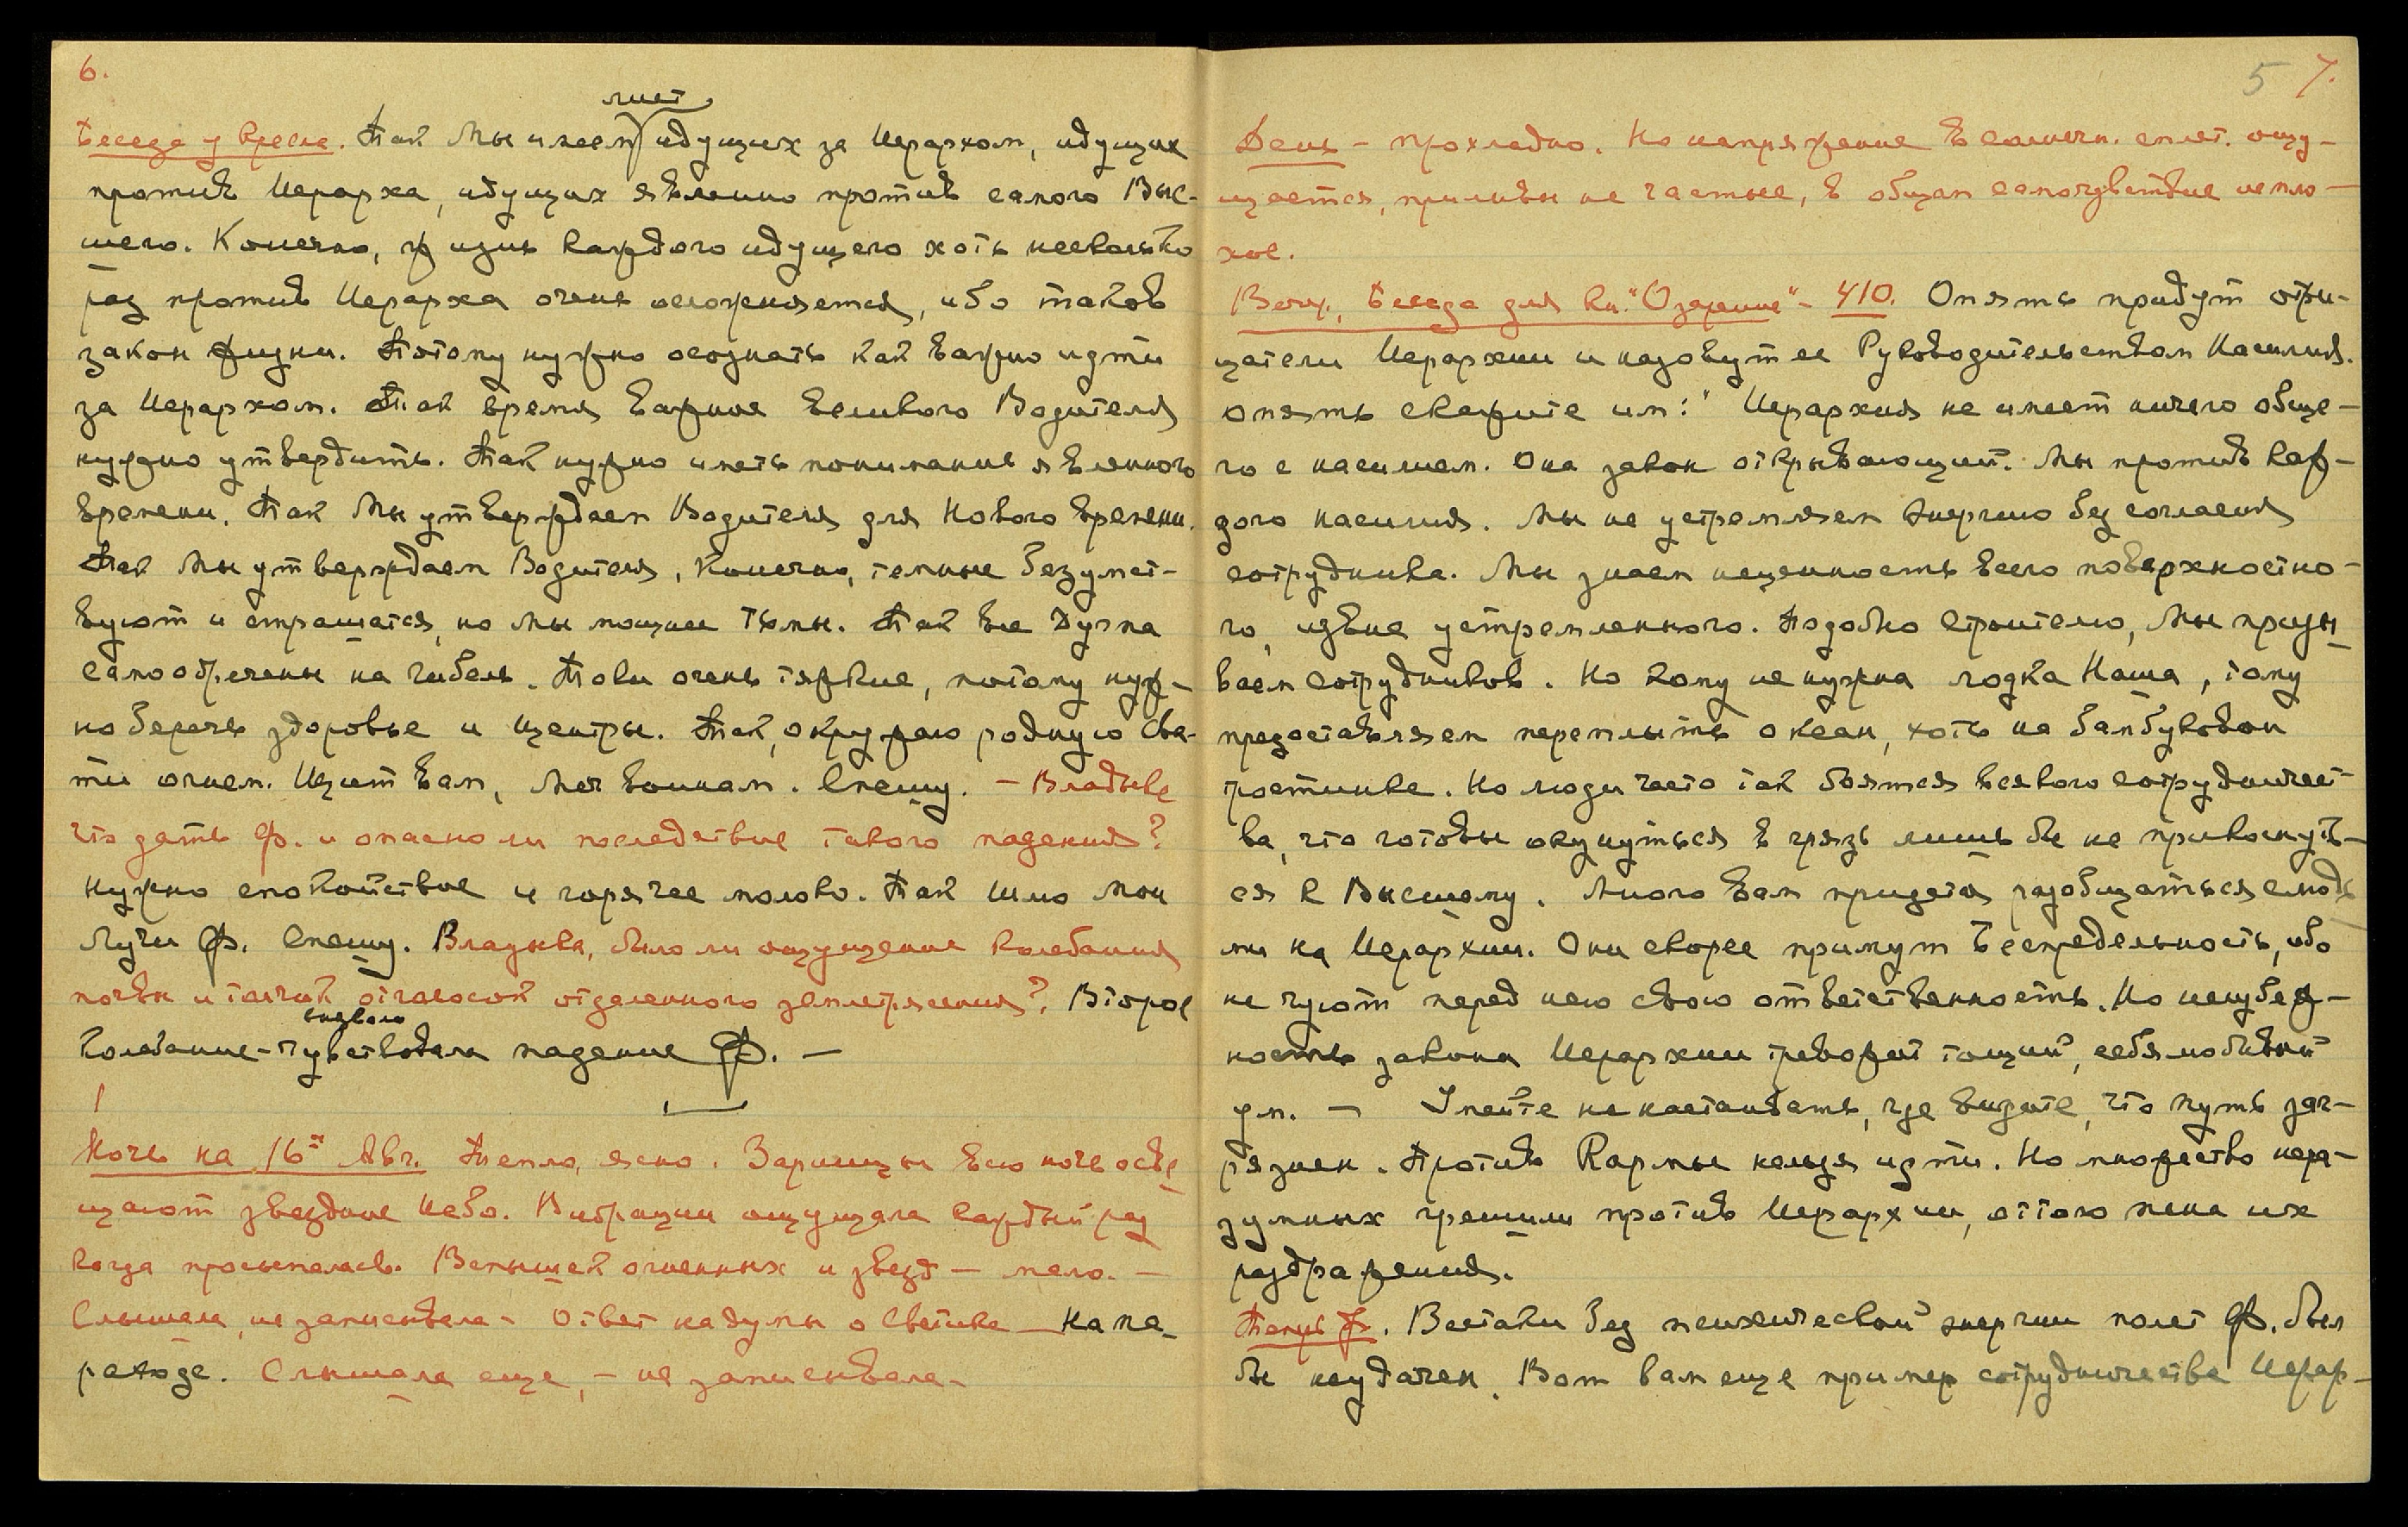 6.
лист
Беседа у кресла. Так Мы имеем идущих за Иерархом, идущих
против Иерарха, идущих явленно против самого Выс-
шего. Конечно, жизнь каждого идущего хоть несколько
раз против Иерарха очень осложняется, ибо таков
закон жизни. Потому нужно осознать как важно идти
за Иерархом. Так время важное Великого Водителя
нужно утвердить. Так нужно иметь понимание явленного
времени. Так Мы утверждаем Водителя для Нового Времени.
Так Мы утверждаем Водителя, Конечно, темные безумст-
вуют и страшатся, но Мы мощнее Тьмы. Так все Дугпа
самообречены на гибель. Токи очень тяжкие, потому нуж-
но беречь здоровье и центры. Так, окружаю родную Свя-
ти огнем. Щит вам, Меч воинам. Спешу. - Владыке
что дать Ф. и опасно ли последствие такого падения?
Нужно спокойствие и горячее молоко. Так Шлю Мои
Лучи Ф. Спешу. Владыка, было ли ощущение колебания
почвы и толчок отголоском отдаленного землетрясения? Второе
колебание - чувствовала падение Ф. —
Ночь на 16ое Авг. Тепло, ясно. Зарницы всю ночь осве
щают звездное Небо. Вибрации ощущала каждый раз
когда просыпалась. Вспышек огненных и звезд — мало. —
Слышала, не записывала - Ответ на думы о Светике — На па-
роходе. Слышала еще, - не записывала -
5 7.
День - прохладно. Но напряжение в солнечн. сплет. ощу-
щается, приливы не частые, в общем самочувствие непло-
хое.
Веч., Беседа для кн. "Озарение" - 410. Опять придут отри-
цатели Иерархии и назовут ее Руководительством Насилия.
опять скажите им: "Иерархия не имеет ничего обще-
го с насилием. Она закон открывающий. Мы против каж-
дого насилия. Мы не устремляем энергию без согласия
сотрудника. Мы знаем неценность всего поверхностно-
го, извне устремленного. Подобно Строителю, Мы призы
ваем сотрудников. Но кому не нужна лодка Наша, тому
предоставляем переплыть океан, хоть на бамбуковой
тростинке. Но люди часто так боятся всякого сотрудничест-
ва, что готовы окунуться в грязь лишь бы не прикоснуть-
ся к Высшему. Много вам придется разобщаться с людь
ми на Иерархии. Они скорее примут Беспредельность, ибо
не чуют перед нею свою ответственность. Но неизбеж-
ность закона Иерархии тревожит тощий, себялюбивый
ум. — Умейте не настаивать, где видите, что путь заг-
рязнен. Против Кармы нельзя идти. Но множество нера-
зумных грешили против Иерархии, оттого пена их
раздражения.
Теперь Ф. Все-таки без психической энергии полет Ф. был
бы неудачен. Вот вам еще пример сотрудничества Иерар-